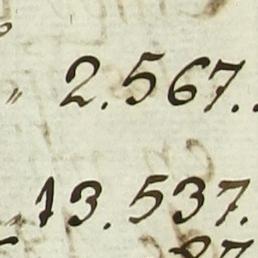 " 2.567.
" 13.537.